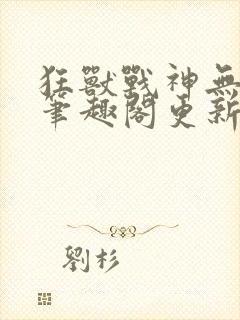 狂獸戰神無
筆趣閣更新
劉杉